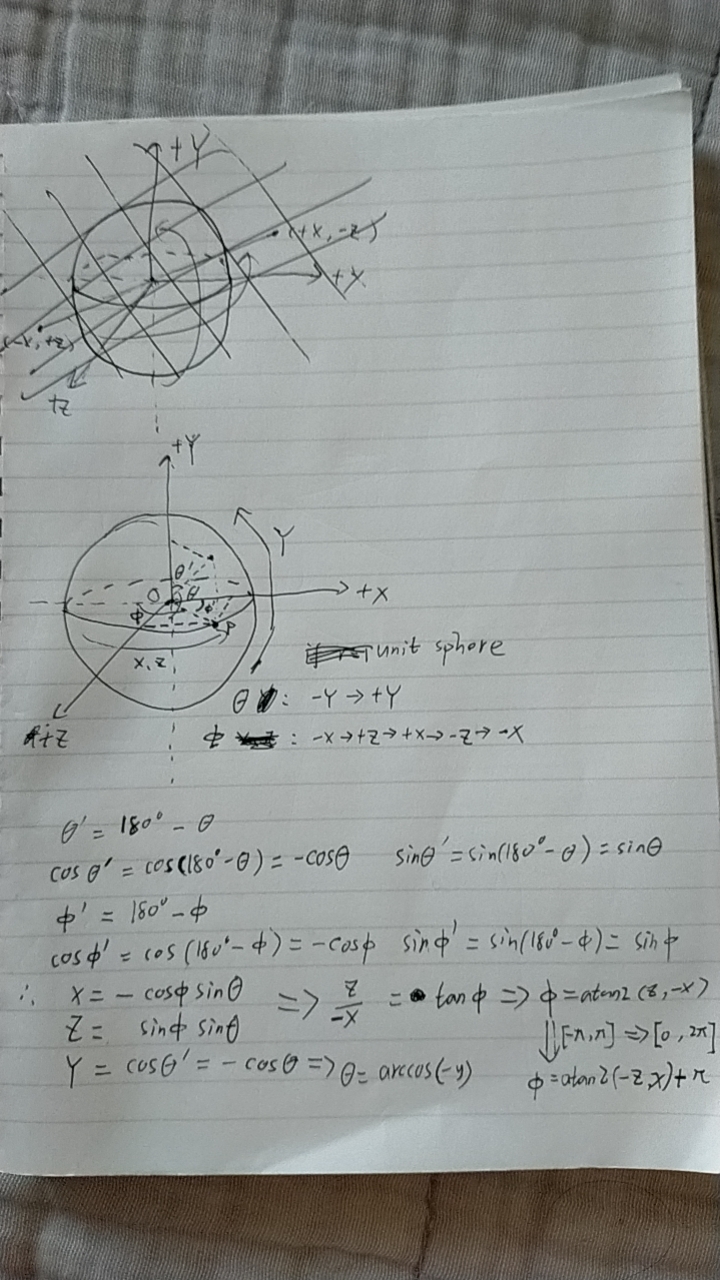 +Y
(+x, -z)
+X
(-x, +z)
+z
+Y
Y
θ'
O
θ
+X
φ
φ'
P
x, z
unit sphere
+Z
θ : -Y → +Y
φ : -X → +Z → +X → -Z → -X
θ' = 180° - θ
cos θ' = cos(180° - θ) = -cosθ sinθ' = sin(180° - θ) = sinθ
φ' = 180° - φ
cosφ' = cos(180° - φ) = -cosφ sinφ' = sin(180° - φ) = sinφ
∴ X = - cosφ sinθ => z/-x = tanφ => φ = atan2(z, -x)
Z = sinφ sinθ ⇓ [-π, π] => [0, 2π]
Y = cosθ' = - cosθ => θ = arccos(-y) φ = atan2(-z, x) + π